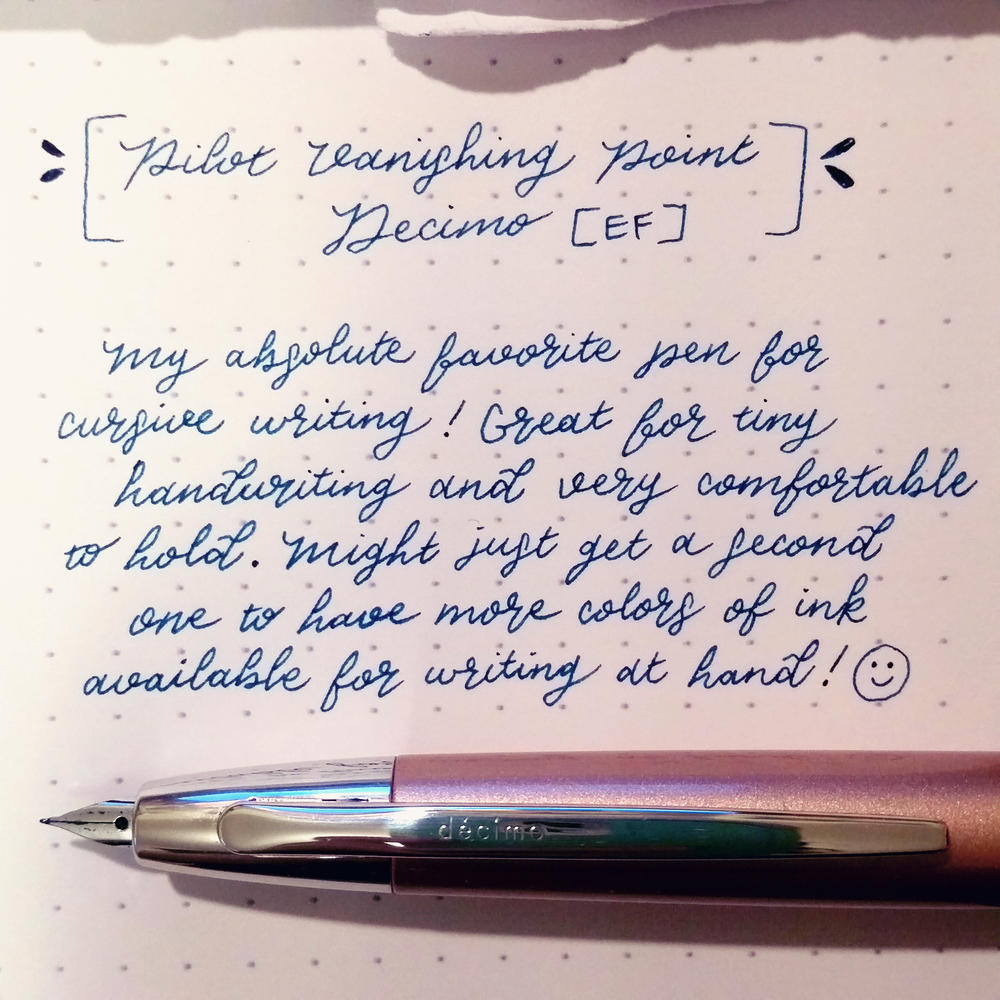 Pilot Vanishing Point
Decimo [EF]
My absolute favorite pen for
cursive writing! Great for tiny
handwriting and very comfortable
to hold. Might just get a second
one to have more colors of ink
available for writing at hand! ☺
décimo